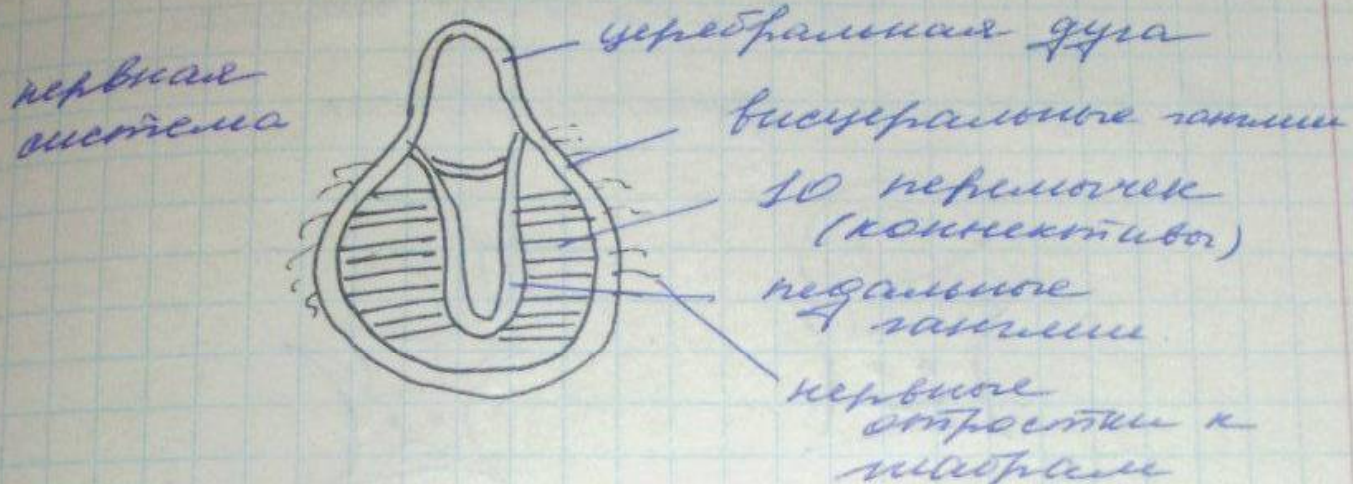 нервная
система
церебральная дуга
висцеральные ганглии
10 перемычек
(коннективы)
педальные
ганглии
нервные
отростки к
жабрам